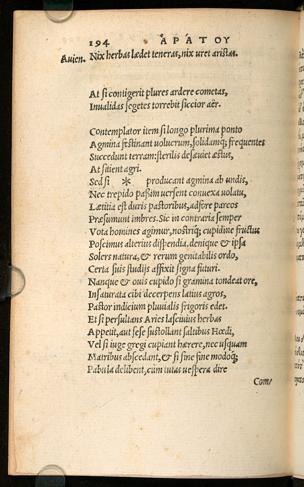 194 ΑΡΑΤΟΥ
Auien. Nix herbas lædet teneras, nix uret aristas.
At si contigerit plures ardere cometas,
Inualidas segetes torrebit siccior aër.
Contemplator item si longo plurima ponto
Agmina festinant uolucrum, solidamq; frequentes
Succedunt terram: sterilis desæuiet æstus,
At sitient agri.
Sed si * producant agmina ab undis,
Nec trepido passim uersent conuexa uolatu,
Lætitia est duris pastoribus, adfore parcos
Præsumunt imbres. Sic in contraria semper
Vota homines agimur, nostriq; cupidine fructus
Poscimus alterius dispendia, denique & ipsa
Solers natura, & rerum genitabilis ordo,
Certa suis studijs affixit signa futuri.
Nanque & ouis cupido si gramina tondeat ore,
Insaturata cibi decerpens latius agros,
Pastor indicium pluuialis frigoris edet.
Et si persultans Aries lasciuius herbas
Appetit, aut sese sustollant saltibus Hœdi,
Vel si iuge gregi cupiant hærere, nec usquam
Matribus abscedant, & si sine fine modoq;
Pabula delibent, cùm tutas uespera dire
Com/